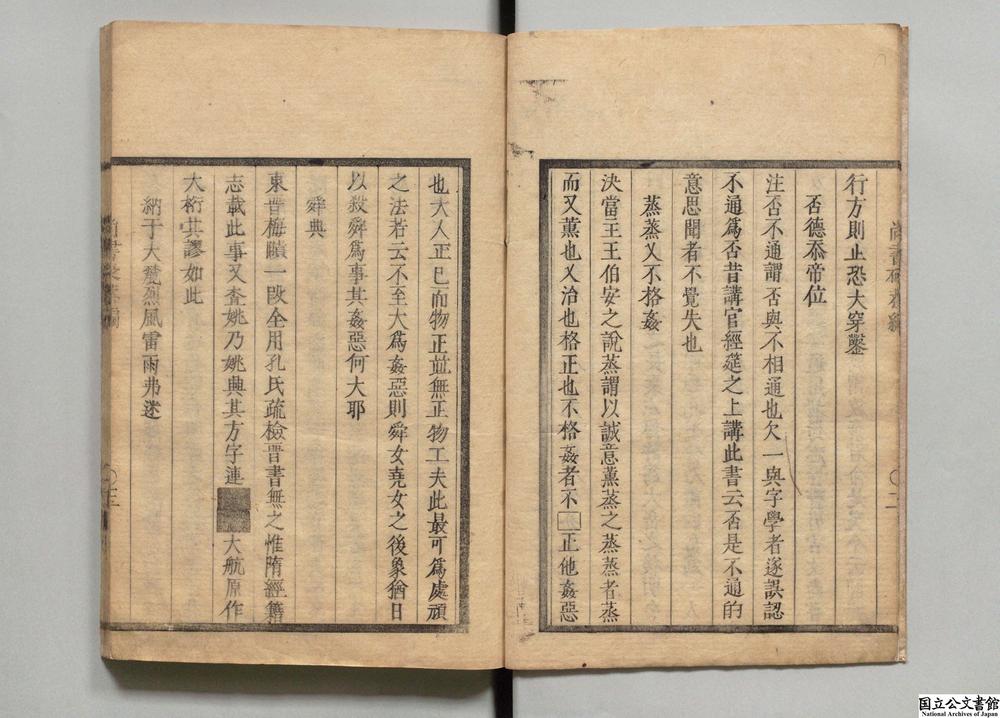 行方則止恐大穿鑿
否德忝帝位
注否不通謂否與不相通也欠一與字學者遂誤認
不通爲否昔講官經筵之上講此書云否是不通的
意思聞者不覺失也
蒸蒸乂不格姦
決當主王伯安之說蒸謂以誠意薰蒸之蒸蒸者蒸
而又薰也乂治也格正也不格姦者不□正他姦惡
也大人正巳而物正並無正物工夫此最可爲處頑
之法若云不至大爲姦惡則舜女堯女之後象猶日
以殺舜爲事其姦惡何大耶
舜典
東晉梅賾一段全用孔氏疏檢晉書無之惟隋經籍
志載此事又查姚乃姚典其方字連大航原作
大桁其謬如此
納于大麓烈風雷雨弗迷
二
三
国立公文書館
National Archives of Japan